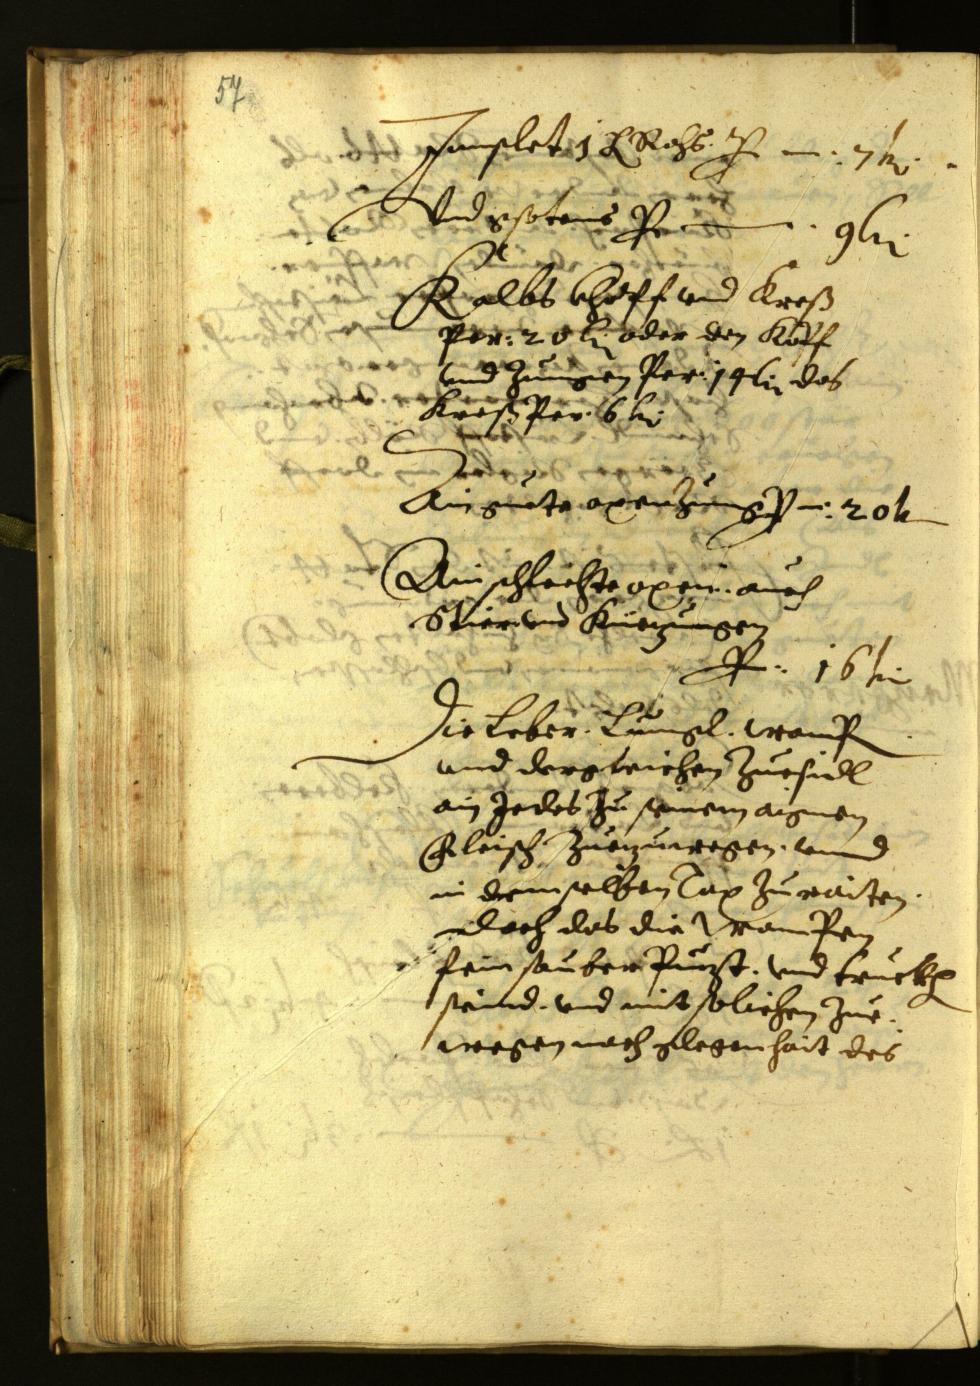 57
Inslet 1 ℔ Rohs. Per — : 7 kr.
Und gsotens Per — . 9 kr
Kalbs Khöpff und Kreß
Per: 20 kr oder den Kopff
und Zungen Per: 14 kr das
Kreß Per. 6 kr
Ain guete oxenzung P — : 20 kr
Ain schlechte oxen. auch
Stier und Küezungen
P: 16 kr
Die Leber. Lungl. wamp
und dergleichen Zuesidl
ain Jedes Zu seinem aignen
Fleisch Zuezuwegen. unnd
in demselben Tax Zuraiten.
doch das die Wampen
sein sauber Puzt. und truckh
seind. und mit solichen Zue
wegen nach glegenhait des